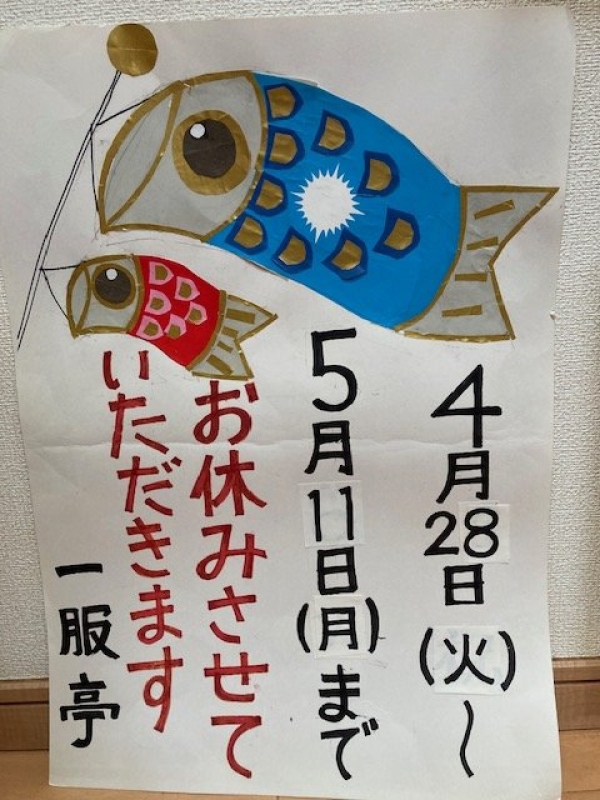 4月28日(火)~
5月11日(月)まで
お休みさせて
いただきます
一服亭